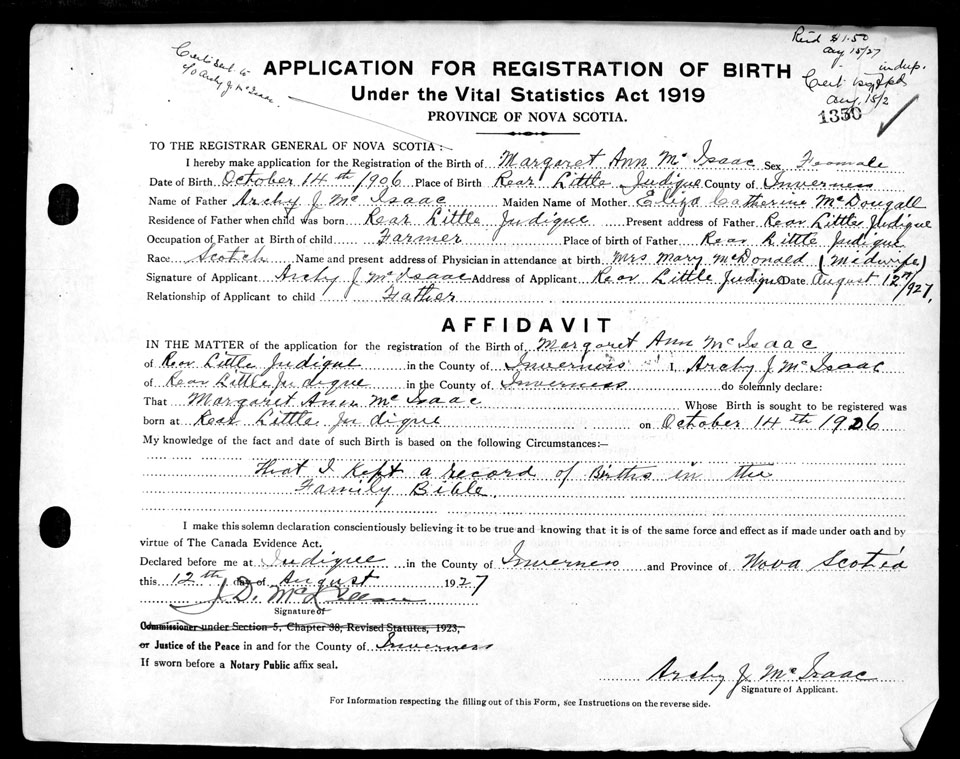 Cert sent to
Archy J. McIsaac.
Rec'd $1.50
Aug 15/27
Cert
Aug. 15/2
1350
APPLICATION FOR REGISTRATION OF BIRTH
Under the Vital Statistics Act 1919
PROVINCE OF NOVA SCOTIA.
TO THE REGISTRAR GENERAL OF NOVA SCOTIA:
I hereby make application for the Registration of the Birth of Margaret Ann Mc Isaac Sex Feomale
Date of Birth October 14th 1906 Place of Birth Rear Little Judique County of Inverness
Name of Father Archy J. Mc Isaac Maiden Name of Mother Eliza Catherine McDougall
Residence of Father when child was born Rear Little Judique Present address of Father Rear Little Judique
Occupation of Father at Birth of child Farmer Place of birth of Father Rear Little Judique
Race Scotch Name and present address of Physician in attendance at birth Mrs Mary McDonald (Midwife)
Signature of Applicant Archy J McIsaac Address of Applicant Rear Little Judique Date August 12th/927.
Relationship of Applicant to child Father
AFFIDAVIT
IN THE MATTER of the application for the registration of the Birth of Margaret Ann Mc Isaac
of Rear Little Judique in the County of Inverness I, Archy J. Mc Isaac
of Rear Little Judique in the County of Inverness do solemnly declare:
That Margaret Ann Mc Isaac Whose Birth is sought to be registered was
born at Rear Little Judique on October 14th 1906
My knowledge of the fact and date of such Birth is based on the following Circumstances:—
That I Kept a record of Births in the
Family Bible.
I make this solemn declaration conscientiously believing it to be true and knowing that it is of the same force and effect as if made under oath and by
virtue of The Canada Evidence Act.
Declared before me at Judique in the County of Inverness and Province of Nova Scotia
this 12th day of August 1927
J. D. McLellan
Signature of
Commissioner under Section 5, Chapter 38, Revised Statutes, 1923,
or Justice of the Peace in and for the County of Inverness
If sworn before a Notary Public affix seal.
Archy J. Mc Isaac
Signature of Applicant.
For Information respecting the filling out of this Form, see Instructions on the reverse side.